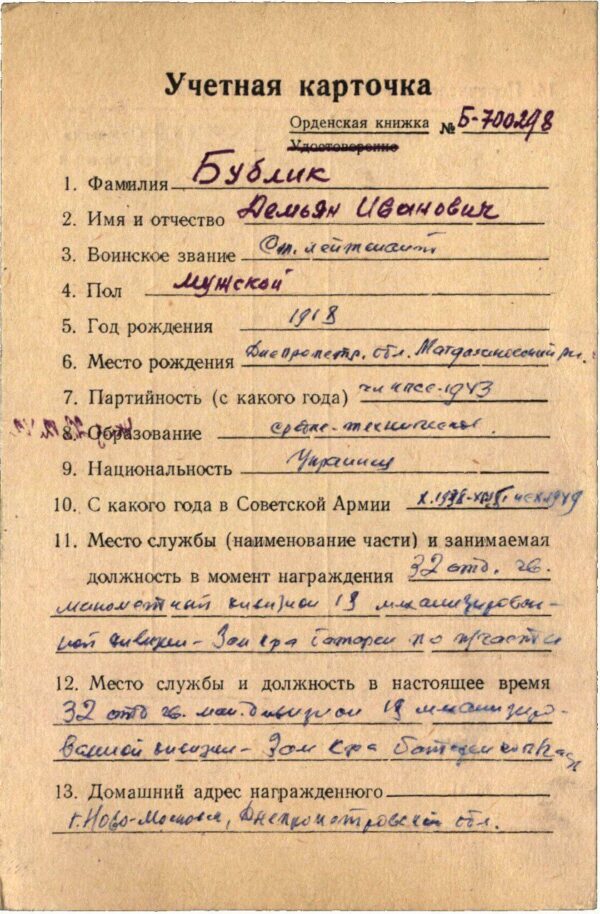 Учетная карточка
Орденская книжка № Б-700298
Удостоверение
1. Фамилия Бублик
2. Имя и отчество Демьян Иванович
3. Воинское звание Ст. лейтенант
4. Пол мужской
5. Год рождения 1918
6. Место рождения Днепропетр. обл.
7. Партийность (с какого года) чл КПСС-1943
8. Образование средне-техническое.
9. Национальность Украинец
10. С какого года в Советской Армии
11. Место службы (наименование части) и занимаемая
должность в момент награждения 32 отд. гв.
минометный дивизион 19 механизирован-
ной дивизии - Зам к-ра батареи по п/части
12. Место службы и должность в настоящее время
32 отд гв. мин. дивизион 19 механизиро-
ванной дивизии - Зам к-ра батареи по
13. Домашний адрес награжденного
г. Ново-Московск, Днепропетровской обл.